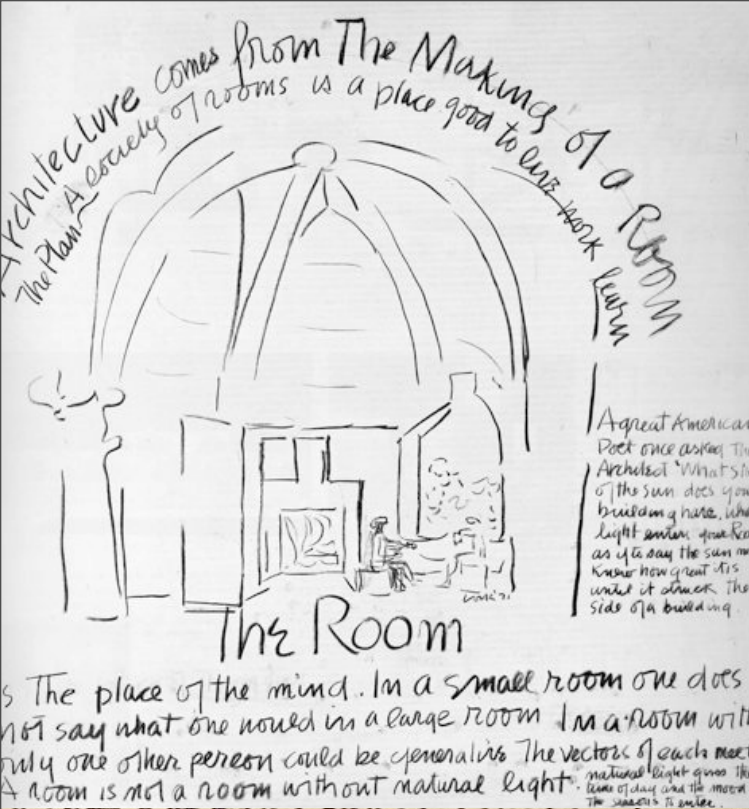 Architecture comes from The Making of a Room
The Plan - A society of rooms is a place good to live work learn
A great American
Poet once asked The
Architect "What sli
of the sun does you
building have, wha
light enters your Roo
as if to say the sun n
knew how great it is
until it struck the
side of a building.
The Room
s The place of the mind. In a small room one does
not say what one would in a large room In a room with
only one other person could be generative The vectors of each meet
A room is not a room without natural light.
natural light gives the
time of day and the mood
The seasons to enter.